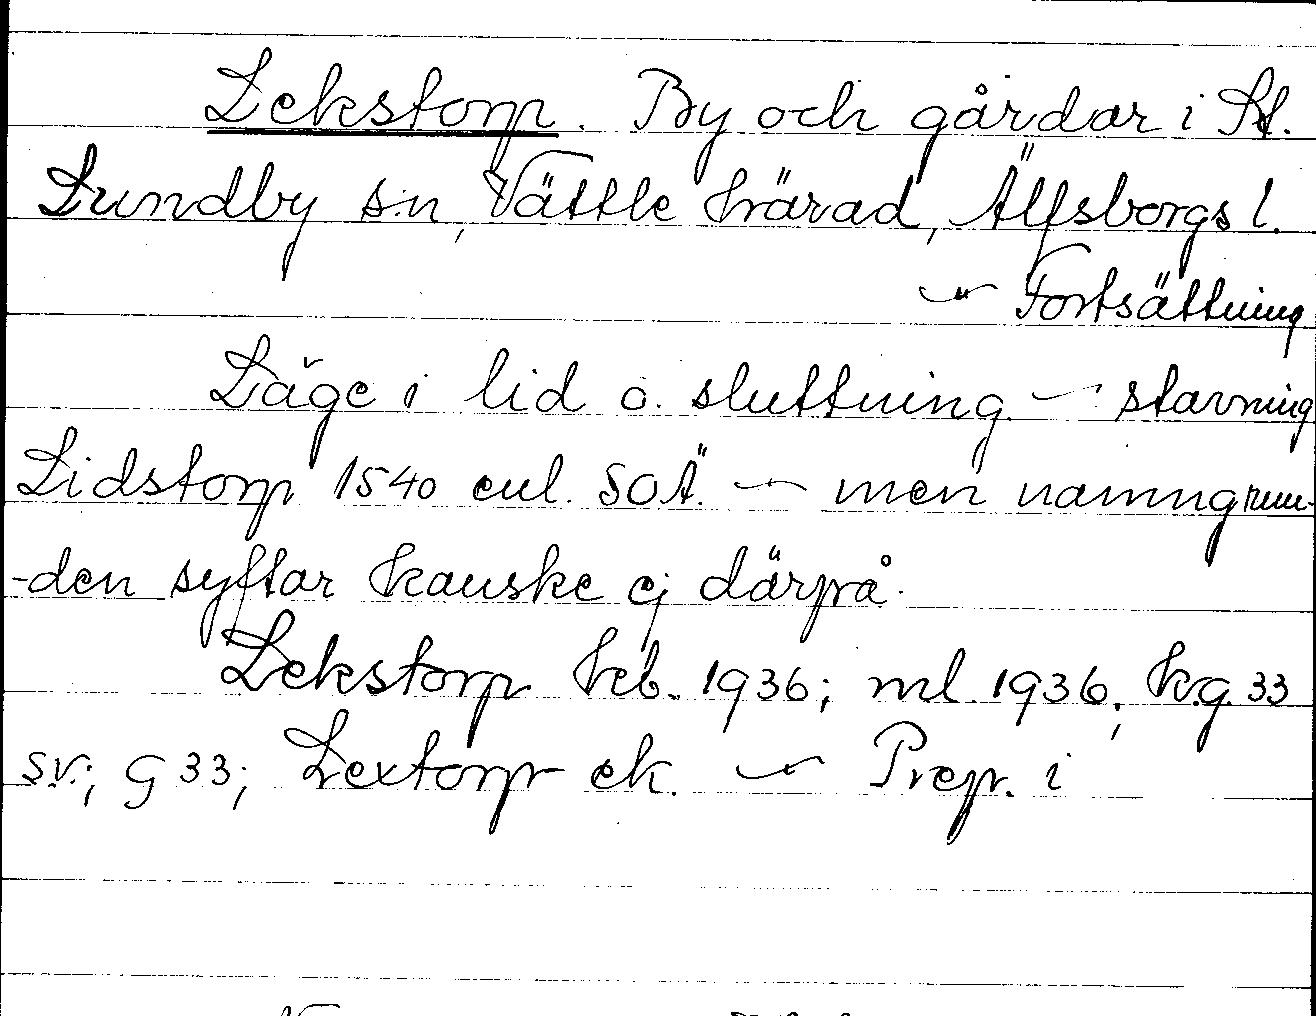 Lekstorp. By och gårdar i St.
Lundby s:n, Vättle härad, Älfsborgs l.
~ Fortsättning
Läge i lid o. sluttning. ~ stavning
Lidstorp 1540 enl. SOÄ. ~ men namngrun-
-den syftar kanske ej därpå.
Lekstorp hcb. 1936; ml. 1936; k.g. 33
sv.; g 33; Lextorp ek. ~ Prep. i